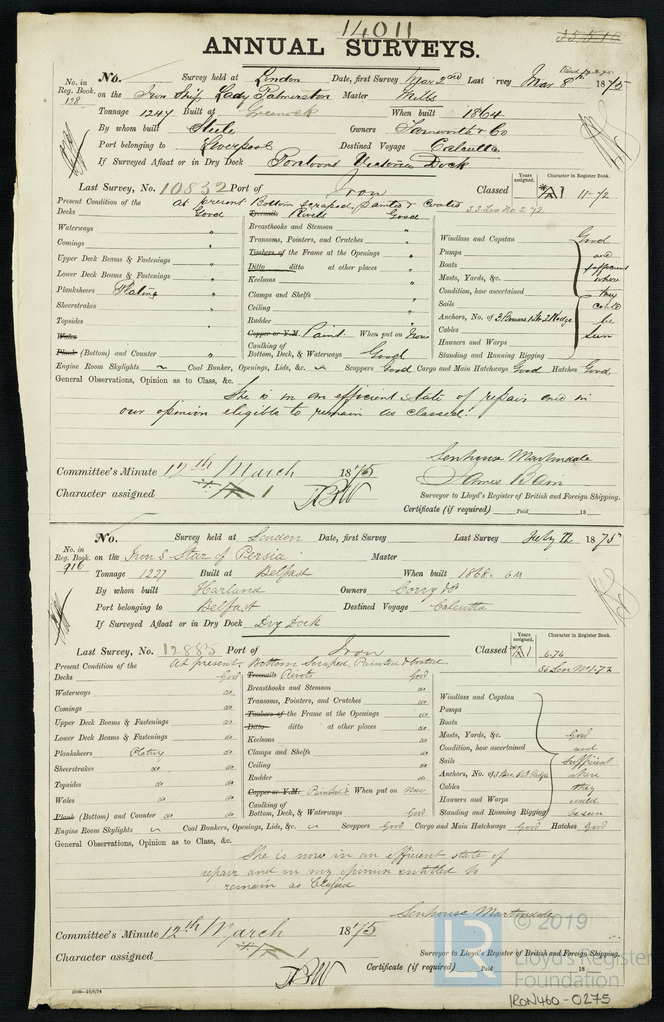 14011
ANNUAL SURVEYS.
No. Survey held at London Date, first Survey Mar 2nd Last Survey Mar 8th 1875
No. in Reg. Book. 128 on the Iron Ship Lady Palmerston Master Mills
Tonnage 1247 Built at Greenock When built 1864
By whom built Steele Owners Farnworth & Co
Port belonging to Liverpool Destined Voyage Calcutta
If Surveyed Afloat or in Dry Dock Pontoons Victoria Dock
Last Survey, No. 10832 Port of Iron Classed Years assigned. A1 Character in Register Book. 11-72
Present Condition of the At present Bottom scraped, painted & coated
Decks Good Treenails Rivets Good
Waterways " Breasthooks and Stemson "
Comings " Transoms, Pointers, and Crutches " Windlass and Capstan Good
Upper Deck Beams & Fastenings " Timbers of the Frame at the Openings " Pumps and
Lower Deck Beams & Fastenings " Ditto ditto at other places " Boats efficient
Planksheers Plating " Keelsons " Masts, Yards, &c. where
Sheerstrakes " Clamps and Shelfs " Condition, how ascertained they
Topsides " Ceiling " Sails could
Wales Rudder " Anchors, No. of 3 Bowers 1 St 2 Kedge be
Plank (Bottom) and Counter " Copper or Y.M. Paint When put on Now Cables seen
Caulking of Bottom, Deck, & Waterways Good Hawsers and Warps
Standing and Running Rigging
Engine Room Skylights ~ Coal Bunker, Openings, Lids, &c. ~ Scuppers Good Cargo and Main Hatchways Good Hatches Good
General Observations, Opinion as to Class, &c.
She is in an efficient state of repair and in
our opinion eligible to remain as classed.
Senhouse Martindale
Committee's Minute 12th March 1875 James Bain
Character assigned A1 Surveyor to Lloyd's Register of British and Foreign Shipping.
Certificate (if required) Paid 18
No. Survey held at London Date, first Survey Last Survey Feby 12 1875
No. in Reg. Book. 916 on the Iron S Star of Persia Master
Tonnage 1227 Built at Belfast When built 1868. 6m
By whom built Harland Owners Corry & Co
Port belonging to Belfast Destined Voyage Calcutta
If Surveyed Afloat or in Dry Dock Dry Dock
Last Survey, No. 12883 Port of Iron Classed Years assigned. A1 Character in Register Book. 6.74
Present Condition of the At present, Bottom Scraped, Painted & coated
Decks Good Treenails Rivets Good
Waterways do Breasthooks and Stemson do Windlass and Capstan
Comings do Transoms, Pointers, and Crutches do Pumps
Upper Deck Beams & Fastenings do Timbers of the Frame at the Openings do Boats
Lower Deck Beams & Fastenings do Ditto ditto at other places do Masts, Yards, &c. Good
Planksheers Plating do Keelsons do Condition, how ascertained and
Sheerstrakes do do Clamps and Shelfs do Sails Sufficient
Topsides do do Ceiling do Anchors, No. where
Wales do do Rudder do Cables they
Plank (Bottom) and Counter do do Copper or Y.M. Painted When put on now Hawsers and Warps could
Caulking of Bottom, Deck, & Waterways Good Standing and Running Rigging be seen
Engine Room Skylights ~ Coal Bunkers, Openings, Lids, &c. ~ Scuppers Good Cargo and Main Hatchways Good Hatches Good
General Observations, Opinion as to Class, &c.
She is now in an efficient state of
repair and in my opinion entitled to
remain as Classed
Senhouse Martindale
Committee's Minute 12th March 1875
Character assigned A1 Surveyor to Lloyd's Register of British and Foreign Shipping.
Certificate (if required) Paid 18
© 2019
LR Lloyd's Register Foundation
IRON460-0275